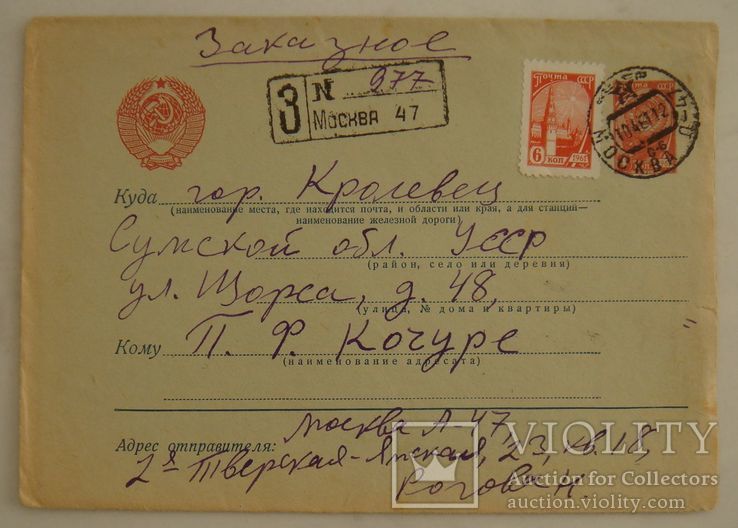 Заказное
З N 977
Москва 47
Почта СССР
6 коп 1961
МОСКВА
Куда гор. Кролевец
(наименование места, где находится почта, и области или края, а для станции—
наименование железной дороги)
Сумской обл. УССР
(район, село или деревня)
ул. Щорса, д. 48,
(улица, № дома и квартиры)
Кому П. Ф. Кочуре
(наименование адресата)
Москва А-47
Адрес отправителя:
2я Тверская-Ямская, 23, кв. 18,
Рогова Н.
VIOLITY
Auction for Collectors
auction.violity.com